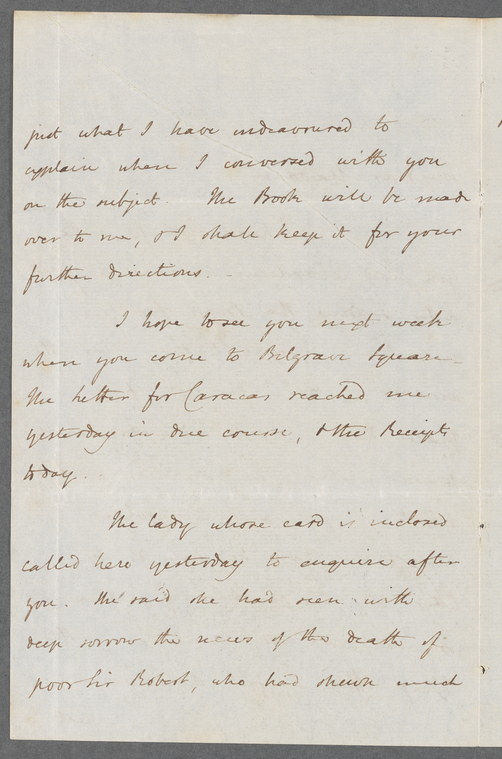 just what I have indeavoured to
explain when I conversed with you
on the subject. The Book will be made
over to me, & I shall keep it for your
further directions. -
I hope to see you next week
when you come to Belgrave Square
The letter for Caracas reached me
yesterday in due course, & the Receipts
today.
The lady whose card is inclosed
called here yesterday to enquire after
you. She said she had seen with
deep sorrow the news of the death of
poor Sir Robert, who had shewn much